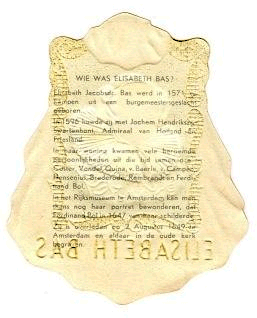 WIE WAS ELISABETH BAS?
Elisabeth Jacobsdr. Bas werd in 1571 te
Kampen uit een burgemeestersgeslacht
geboren.
In 1596 huwde zij met Jochem Hendriksz.
Swartenhont, Admiraal van Holland en
Friesland.
In haar woning kwamen vele beroemde
persoonlijkheden uit die tijd samen o.a.
Coster, Vondel, Quina, v. Baerle, v. Campen,
Rensenius, Brederode, Rembrandt en Ferdi-
nand Bol.
In het Rijksmuseum te Amsterdam kan men
thans nog haar portret bewonderen, dat
Ferdinand Bol in 1647 van haar schilderde.
Zij is overleden op 2 Augustus 1649 te
Amsterdam en aldaar in de oude kerk
begraven.
ELISABETH BAS